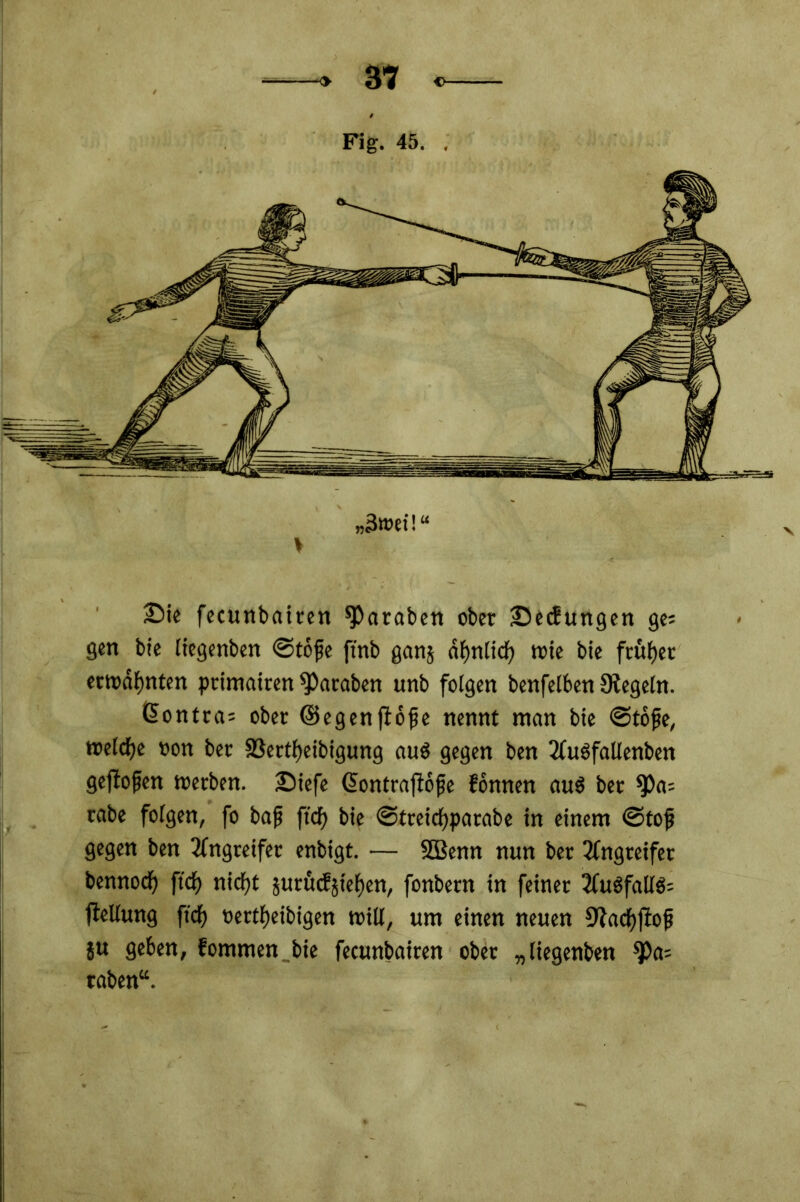 37
Fig. 45.
„Zwei!“
Die secundairen Paraden oder Deckungen ge=
gen die liegenden Stöße sind ganz ähnlich wie die früher
erwähnten primairen Paraden und folgen denselben Regeln.
Contra= oder Gegenstöße nennt man die Stöße,
welche von der Vertheidigung aus gegen den Ausfallenden
gestoßen werden. Diese Contrastöße können aus der Pa=
rade folgen, so daß sich die Streichparade in einem Stoß
gegen den Angreifer endigt. — Wenn nun der Angreifer
dennoch sich nicht zurückziehen, sondern in seiner Ausfalls=
stellung sich vertheidigen will, um einen neuen Nachstoß
zu geben, kommen die secundairen oder „liegenden Pa=
raden“.